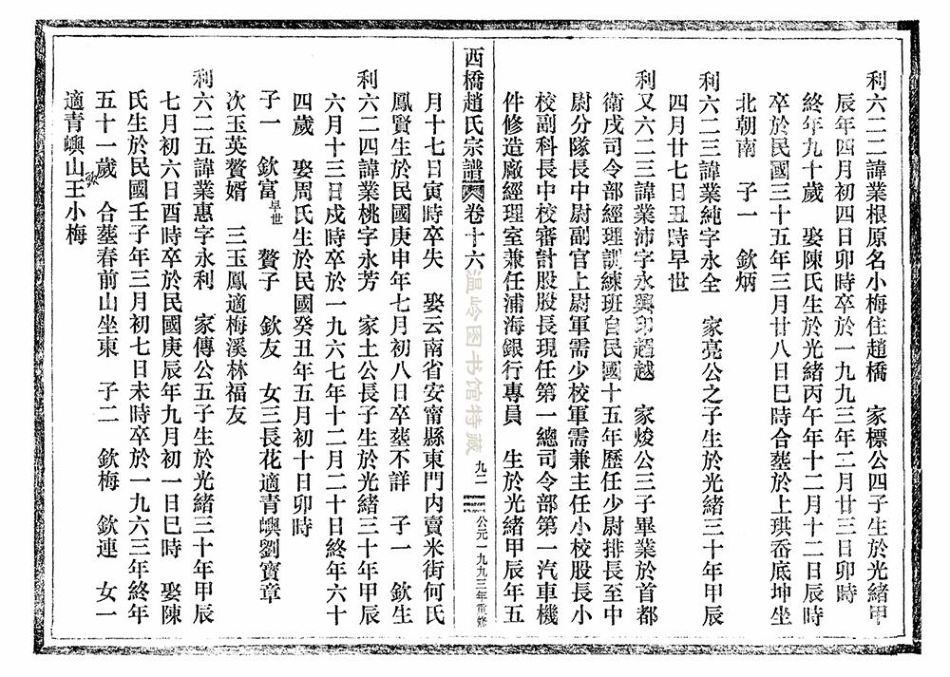 利六二二諱業根原名小梅住趙橋 家標公四子生於光緒甲
辰年四月初四日卯時卒於一九九三年二月廿三日卯時
終年九十歲 娶陳氏生於光緒丙午年十二月十二日辰時
卒於民國三十五年三月廿八日巳時合塟於上珙岙底坤坐
北朝南 子一 欽炳
利六二三諱業純字永全 家亮公之子生於光緒三十年甲辰
四月廿七日丑時早世
利又六二三諱業沛字永興印超越 家焌公三子畢業於首都
衛戍司令部經理訓練班自民國十五年歷任少尉排長至中
尉分隊長中尉副官上尉軍需少校軍需兼主任小校股長小
校副科長中校審計股股長現任第一總司令部第一汽車機
件修造廠經理室兼任浦海銀行專員 生於光緒甲辰年五
西橋趙氏宗譜 卷十六 九二 公元一九九三年重修
溫岭图书馆特藏
月十七日寅時卒失 娶云南省安甯縣東門內賣米街何氏
鳳賢生於民國庚申年七月初八日卒塟不詳 子一 欽生
利六二四諱業桃字永芳 家土公長子生於光緒三十年甲辰
六月十三日戌時卒於一九六七年十二月二十日終年六十
四歲 娶周氏生於民國癸丑年五月初十日卯時
子一 欽富早世 贅子 欽友 女三長花適青嶼劉寶章
次玉英贅婿 三玉鳳適梅溪林福友
利六二五諱業惠字永利 家傳公五子生於光緒三十年甲辰
七月初六日酉時卒於民國庚辰年九月初一日巳時 娶陳
氏生於民國壬子年三月初七日未時卒於一九六三年終年
五十一歲 合塟春前山坐東 子二 欽梅 欽連 女一
適青嶼山王小梅